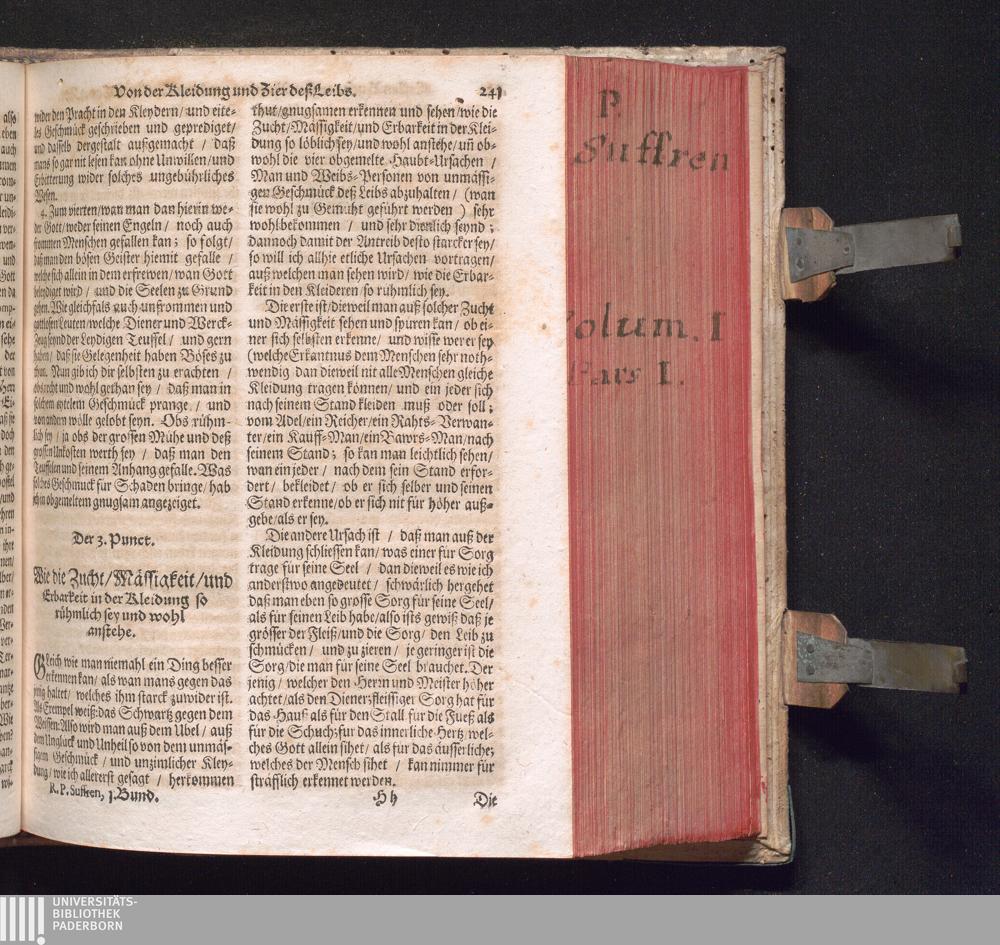 Von der Kleidung und Zier deß Leibs. 241
wider den Pracht in den Kleydern / und eite-
les Geschmuck geschrieben und geprediget/
und dasselb dergestalt außgemacht / daß
mans so gar nit lesen kan ohne Unwillen / und
Erbitterung wider solches ungebührliches
Wesen.
4. Zum vierten / wan man dan hierin we-
der Gott / weder seinen Engeln / noch auch
frommen Menschen gefallen kan; so folgt/
daß man den bösen Geister hiemit gefalle /
welche sich allein in dem erfrewen / wan Gott
beleydiget wird / und die Seelen zu Grund
gehen. Wie gleichfals auch unfrommen und
gottlosen Leuten / welche Diener und Werck-
Zeug seynd der Leydigen Teuffel / und gern
haben / daß sie Gelegenheit haben Böses zu
thun. Nun gib ich dir selbsten zu erachten /
obs recht und wohl gethan sey / daß man in
solchem eytelem Geschmück prange / und
von andern wölle gelobt seyn. Obs rühm-
lich sey / ja obs der grossen Mühe und deß
grossen Unkosten werth sey / daß man den
Teuffelen und seinem Anhang gefalle. Was
solches Geschmuck für Schaden bringe / hab
ich in obgemeltem gnugsam angezeiget.
Der 3. Punct.
Wie die Zucht / Mässigkeit / und
Erbarkeit in der Kleidung so
rühmlich sey und wohl
anstehe.
Gleich wie man niemahl ein Ding besser
erkennen kan / als wan mans gegen das
jenig haltet / welches ihm starck zuwider ist.
Als Exempel weiß: das Schwartz gegen dem
Weissen: Also wird man auß dem Ubel / auß
dem Ungluck und Unheil so von dem unmäs-
sigem Geschmück / und unzimlicher Kley-
dung / wie ich allererst gesagt / herkommen
R. P. Suffren, 1. Bund.
thut / gnugsamen erkennen und sehen / wie die
Zucht / Mässigkeit / und Erbarkeit in der Klei-
dung so löblich sey / und wohl anstehe / uñ ob-
wohl die vier obgemelte Haubt-Ursachen /
Man und Weibs-Personen von unmässi-
gen Geschmück deß Leibs abzuhalten / (wan
sie wohl zu Gemüht geführt werden ) sehr
wohlbekommen / und sehr dienlich seynd ;
dannoch damit der Antreib desto starcker sey /
so will ich allhie etliche Ursachen vortragen /
auß welchen man sehen wird / wie die Erbar-
keit in den Kleideren / so rühmlich sey.
Die erste ist / dieweil man auß solcher Zucht
und Mässigkeit sehen und spüren kan / ob ei-
ner sich selbsten erkenne / und wisse wer er sey
(welche Erkantnus dem Menschen sehr noth-
wendig dan dieweil nit alle Menschen gleiche
Kleidung tragen können / und ein jeder sich
nach seinem Stand kleiden muß oder soll ;
vom Adel / ein Reicher / ein Rahts- Verwan-
ter / ein Kauff-Man / ein Bawrs-Man / nach
seinem Stand ; so kan man leichtlich sehen /
wan ein jeder / nach dem sein Stand erfor-
dert / bekleidet / ob er sich selber und seinen
Stand erkenne / ob er sich nit für höher auß-
gebe / als er sey.
Die andere Ursach ist / daß man auß der
Kleidung schliessen kan / was einer für Sorg
trage für seine Seel / dan dieweil es wie ich
anderstwo angedeutet / schwärlich hergehet
daß man eben so grosse Sorg für seine Seel /
als für seinen Leib habe / also ists gewiß daß je
grösser der Fleiß / und die Sorg / den Leib zu
schmücken / und zu zieren / je geringer ist die
Sorg / die man für seine Seel brauchet. Der
jenig / welcher den Herrn und Meister höher
achtet / als den Diener; fleissiger Sorg hat für
das Hauß als für den Stall für die Fueß als
für die Schuch: für das innerliche Hertz wel-
ches Gott allein sihet / als für das äusserliche;
welches der Mensch sihet / kan nimmer für
sträfflich erkennet werden.
Hh Die
P.
Suffren
Volum. I
Pars I.
UNIVERSITÄTS-
BIBLIOTHEK
PADERBORN